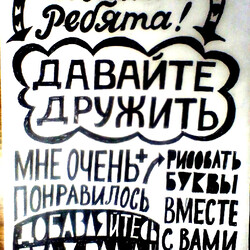 Ребята!
ДАВАЙТЕ
ДРУЖИТЬ
МНЕ ОЧЕНЬ+
ПОНРАВИЛОСЬ
РИСОВАТЬ
БУКВЫ
ВМЕСТЕ
С ВАМИ